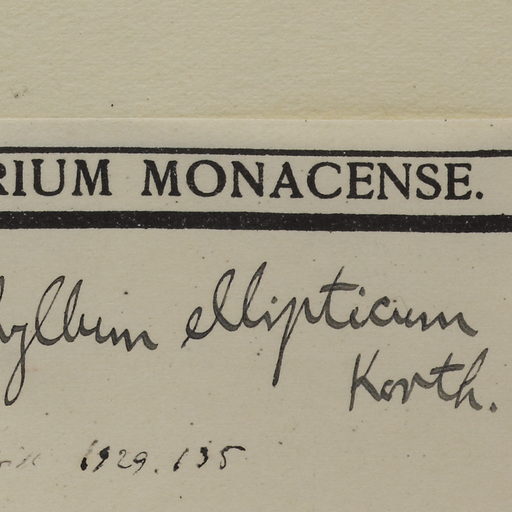 RIUM MONACENSE.
hyllum ellipticum
Korth.
1929.135